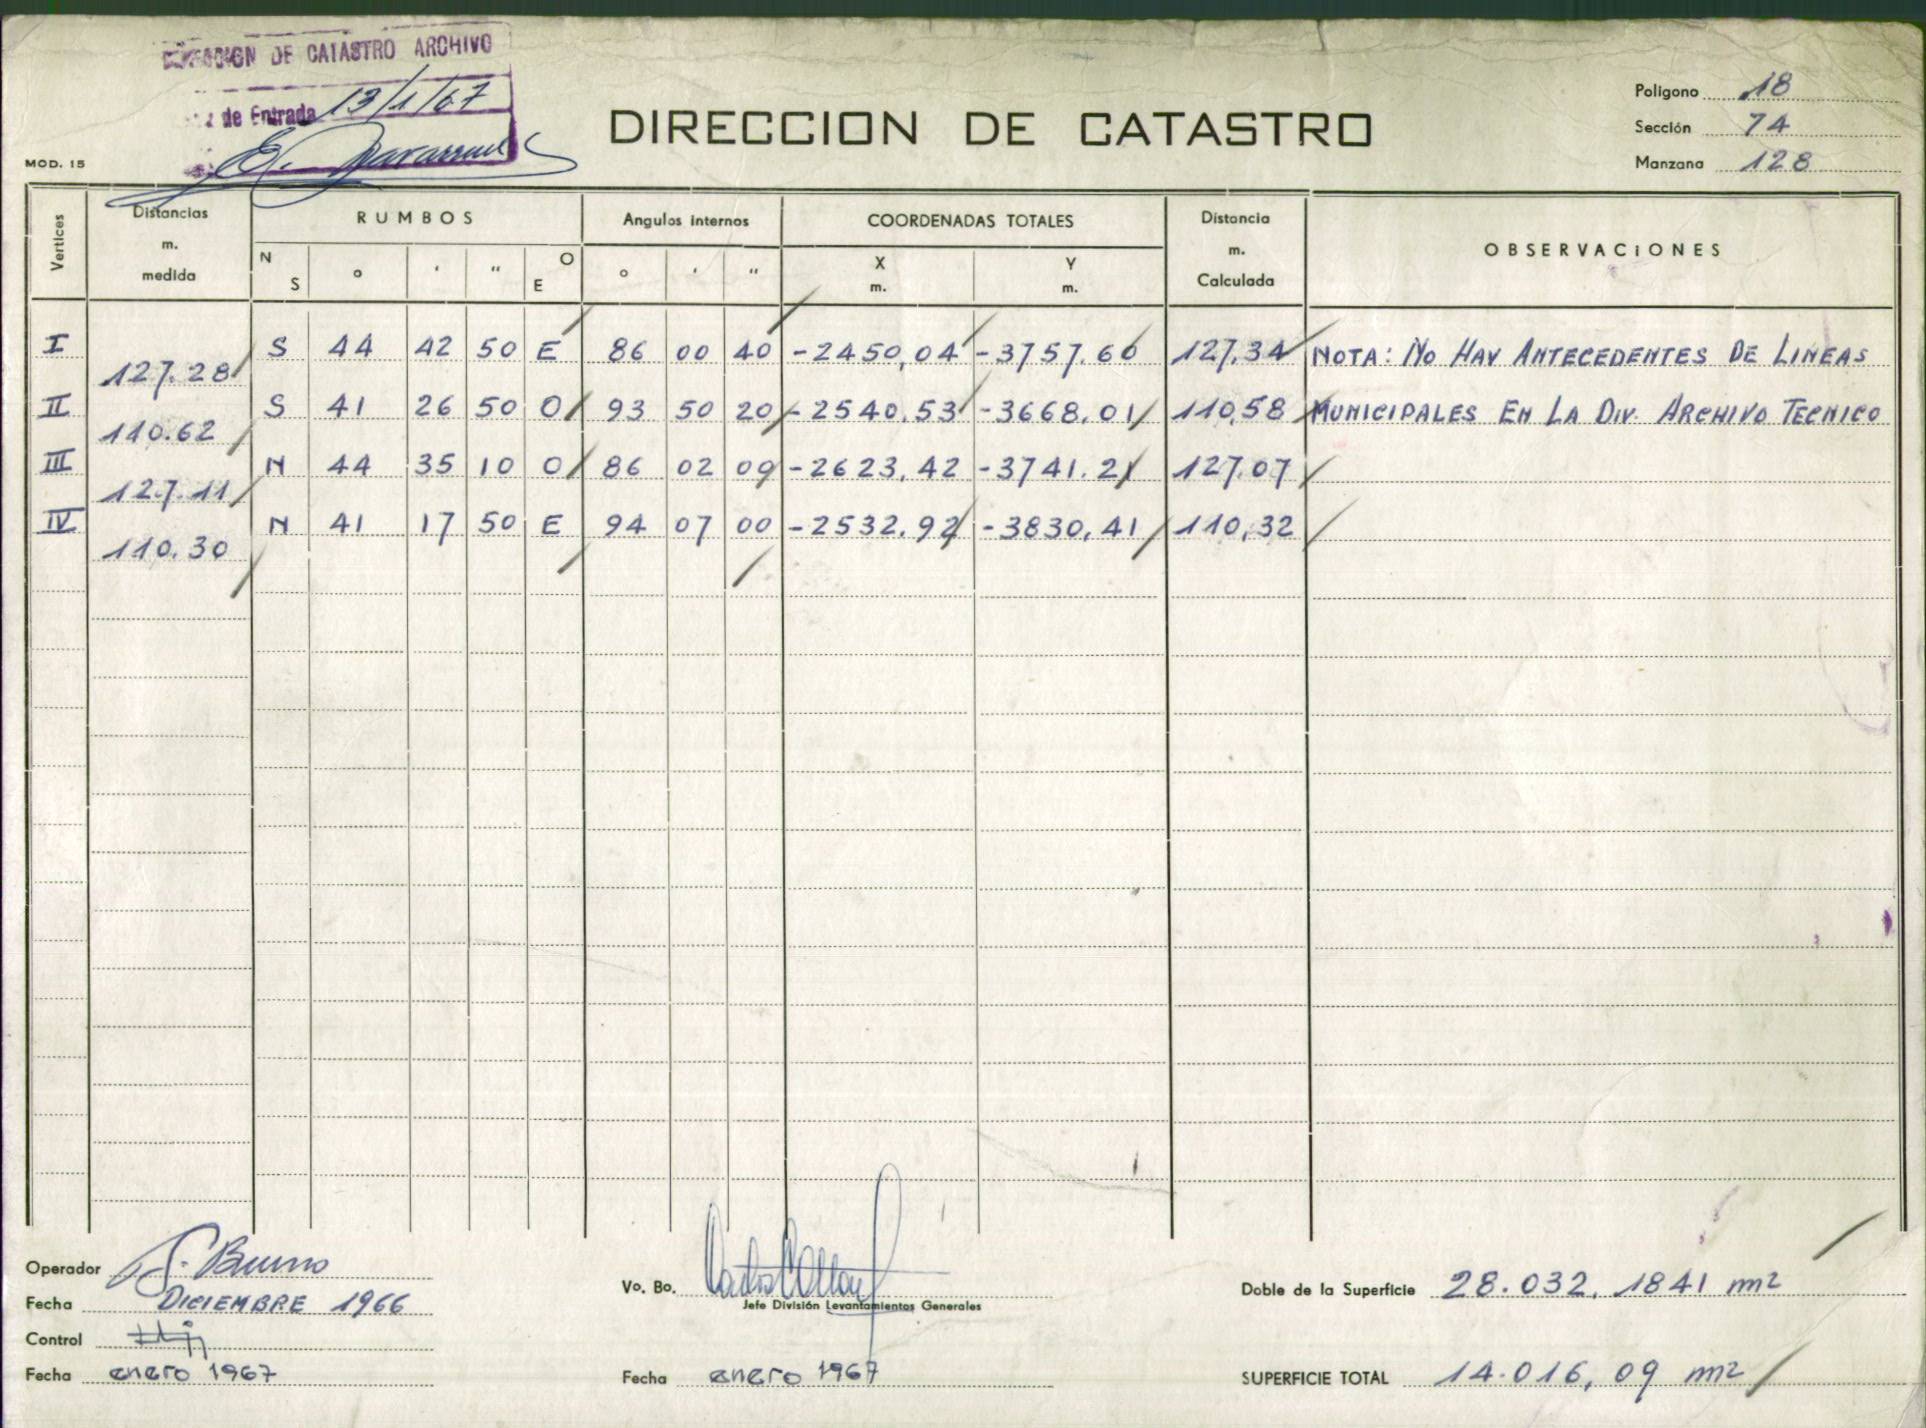 DIRECCION DE CATASTRO ARCHIVO
de Entrada 13/1/67
MOD. 15
DIRECCION DE CATASTRO
Poligono 18
Sección 74
Manzana 128
Vertices
Distancias m. medida
RUMBOS
Angulos internos
COORDENADAS TOTALES
Distancia m. Calculada
OBSERVACIONES
N S ° ' " O E ° ' " X m. Y m.
I S 44 42 50 E 86 00 40 -2450,04 -3757.60 127,34 NOTA: NO HAY ANTECEDENTES DE LINEAS
127.28
II S 41 26 50 O 93 50 20 -2540,53 -3668,01 110,58 MUNICIPALES EN LA DIV. ARCHIVO TECNICO
110.62
III N 44 35 10 O 86 02 09 -2623,42 -3741.21 127.07
127.11
IV N 41 17 50 E 94 07 00 -2532.92 -3830,41 110,32
110.30
Operador G. Bueno
Fecha DICIEMBRE 1966
Control
Fecha enero 1967
Vo. Bo.
Jefe División Levantamientos Generales
Fecha enero 1967
Doble de la Superficie 28.032,1841 m2
SUPERFICIE TOTAL 14.016,09 m2